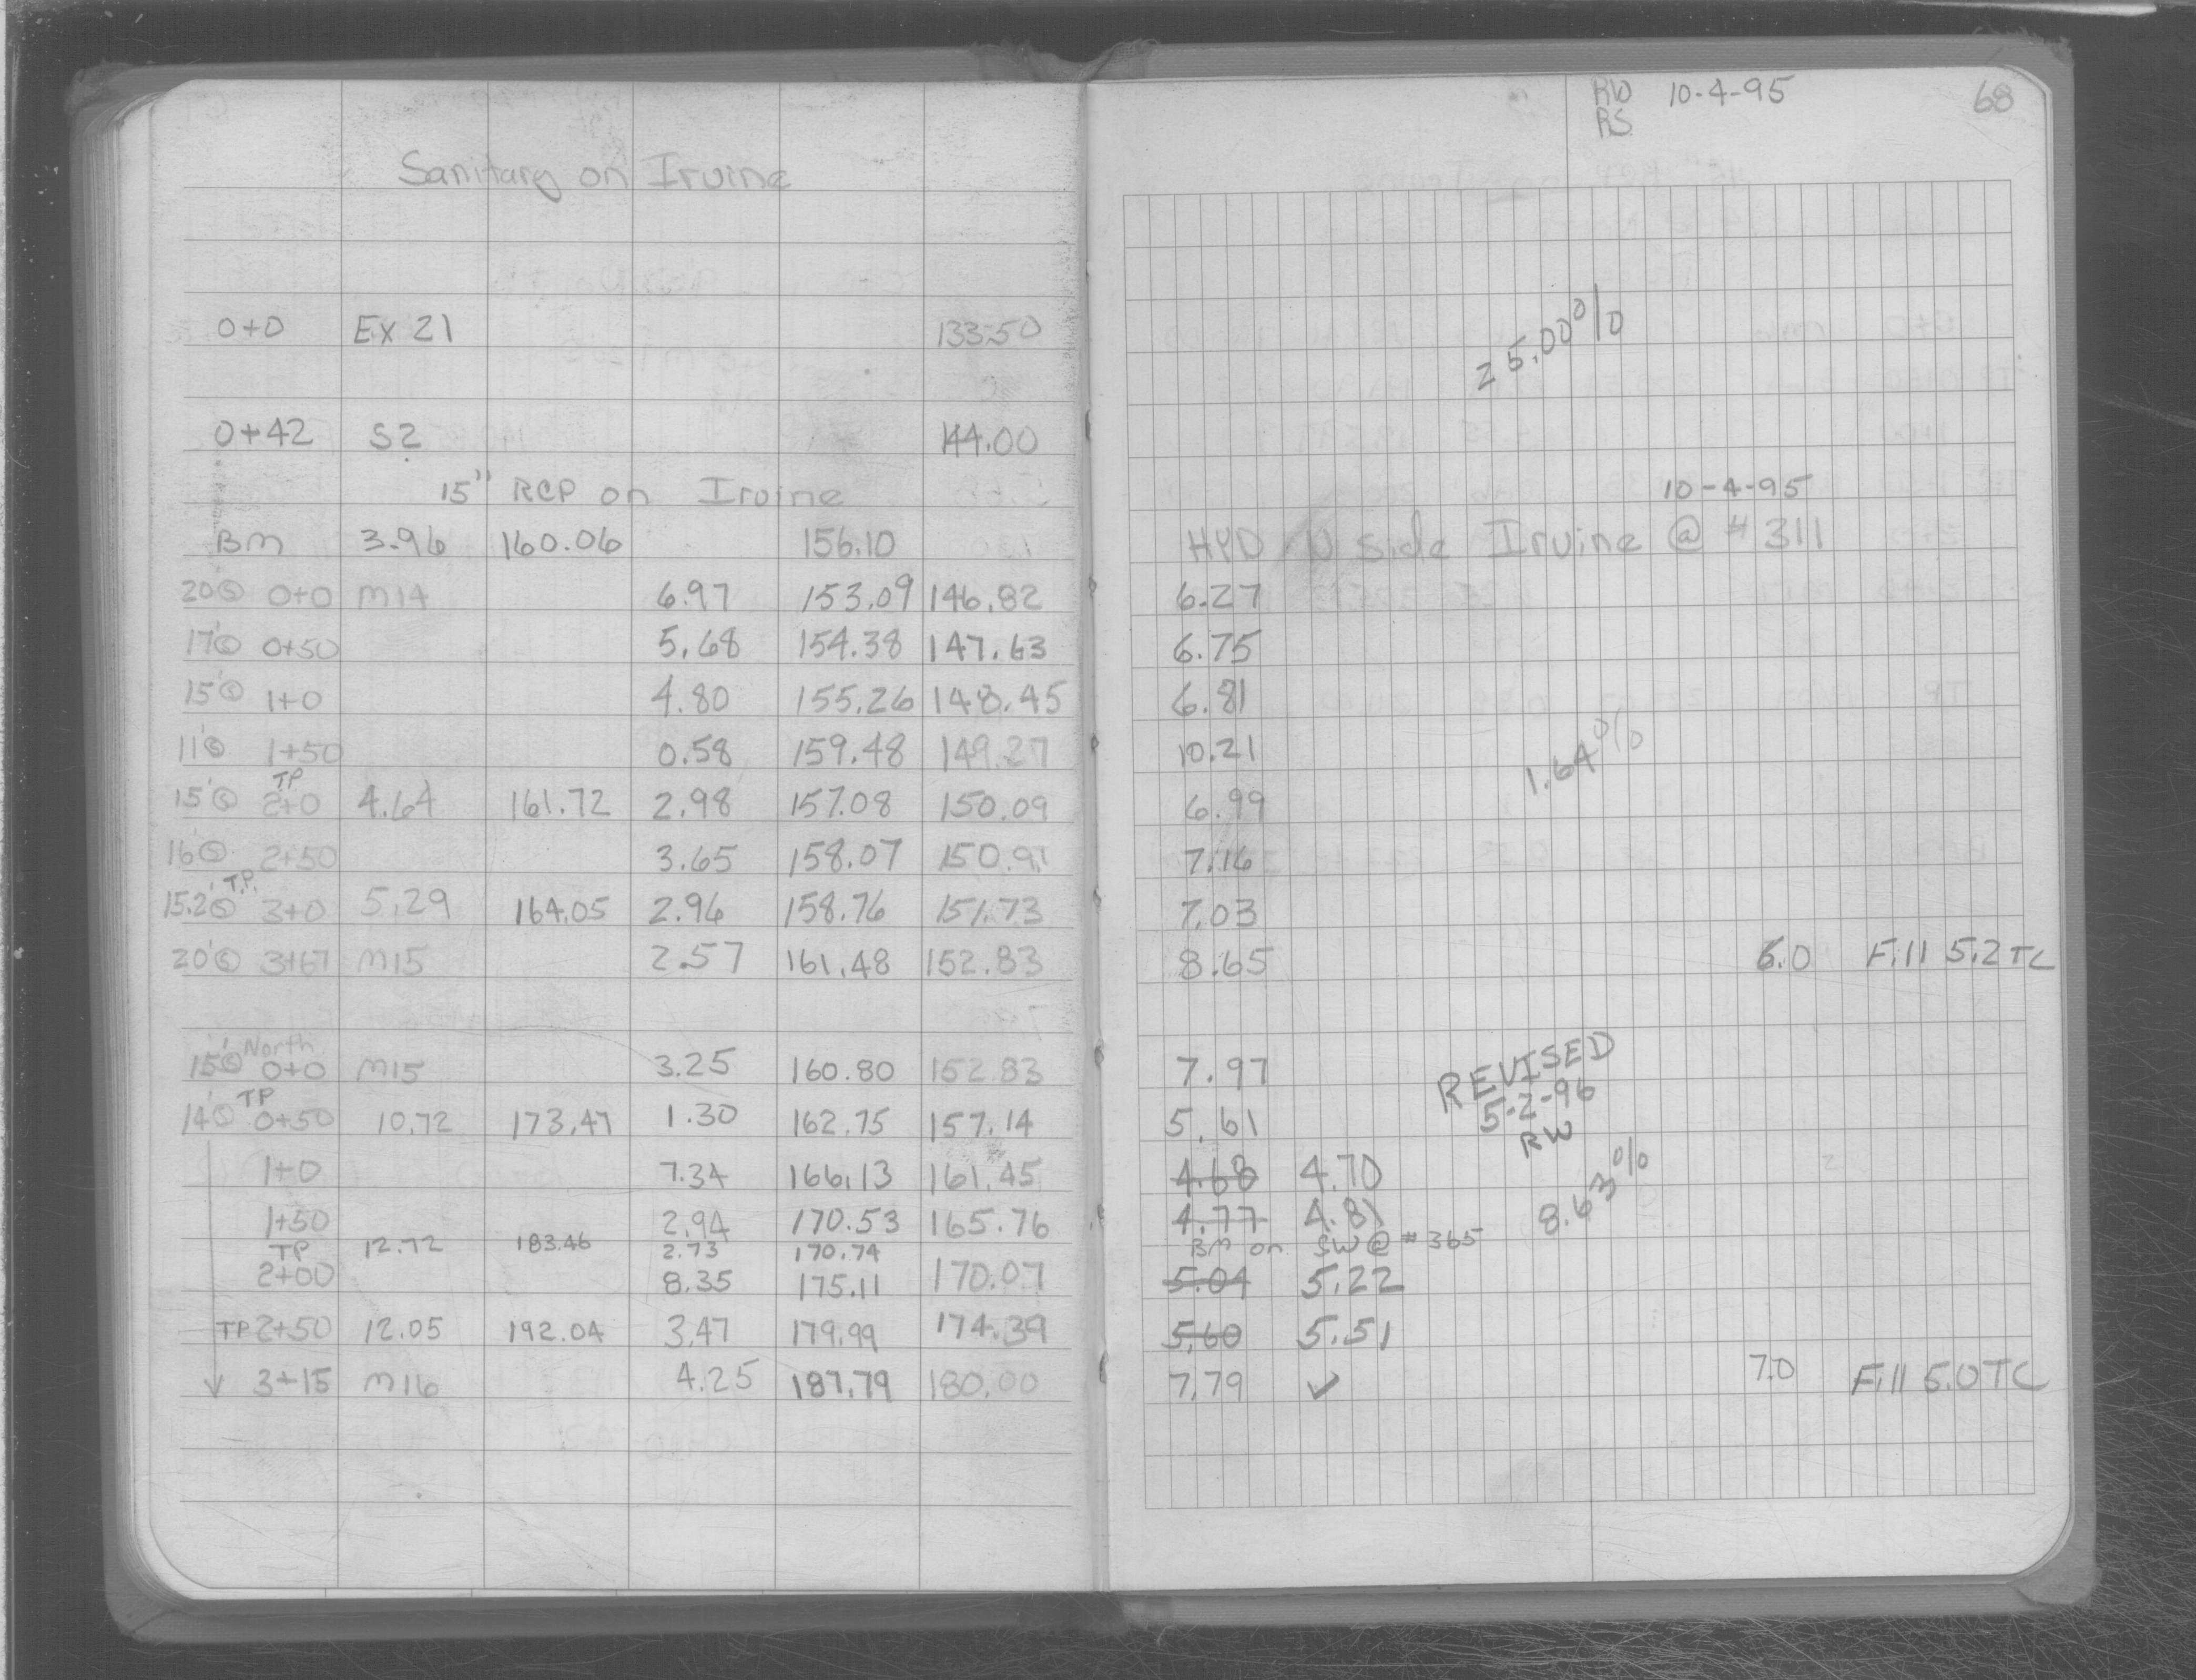 RW 10-4-95 68
RS
Sanitary on Irvine
0+0 Ex 21 133.50
25.00%
0+42 S2 144.00
15" RCP on Irvine 10-4-95
BM 3.96 160.06 156.10 HYD N side Irvine @ #311
20' 0+0 M14 6.97 153.09 146.82 6.27
17' 0+50 5.68 154.38 147.63 6.75
15' 1+0 4.80 155.26 148.45 6.81
11' 1+50 0.58 159.48 149.27 10.21
1.64%
15' TP 2+0 4.64 161.72 2.98 157.08 150.09 6.99
16' 2+50 3.65 158.07 150.91 7.16
15.2' T.P. 3+0 5.29 164.05 2.96 158.76 151.73 7.03
20' 3+67 M15 2.57 161.48 152.83 8.65 6.0 Fill 5.2 TC
North
15' 0+0 M15 3.25 160.80 152.83 7.97
REVISED
5-2-96
RW
14' TP 0+50 10.72 173.47 1.30 162.75 157.14 5.61
1+0 7.34 166.13 161.45 4.68 4.70
8.63%
1+50 2.94 170.53 165.76 4.77 4.81
TP 12.72 183.46 2.73 170.74 BM on SW @ #365
2+00 8.35 175.11 170.07 5.04 5.22
TP 2+50 12.05 192.04 3.47 179.99 174.39 5.60 5.51
3+15 M16 4.25 187.79 180.00 7.79 ✓ 7.0 Fill 5.0 TC